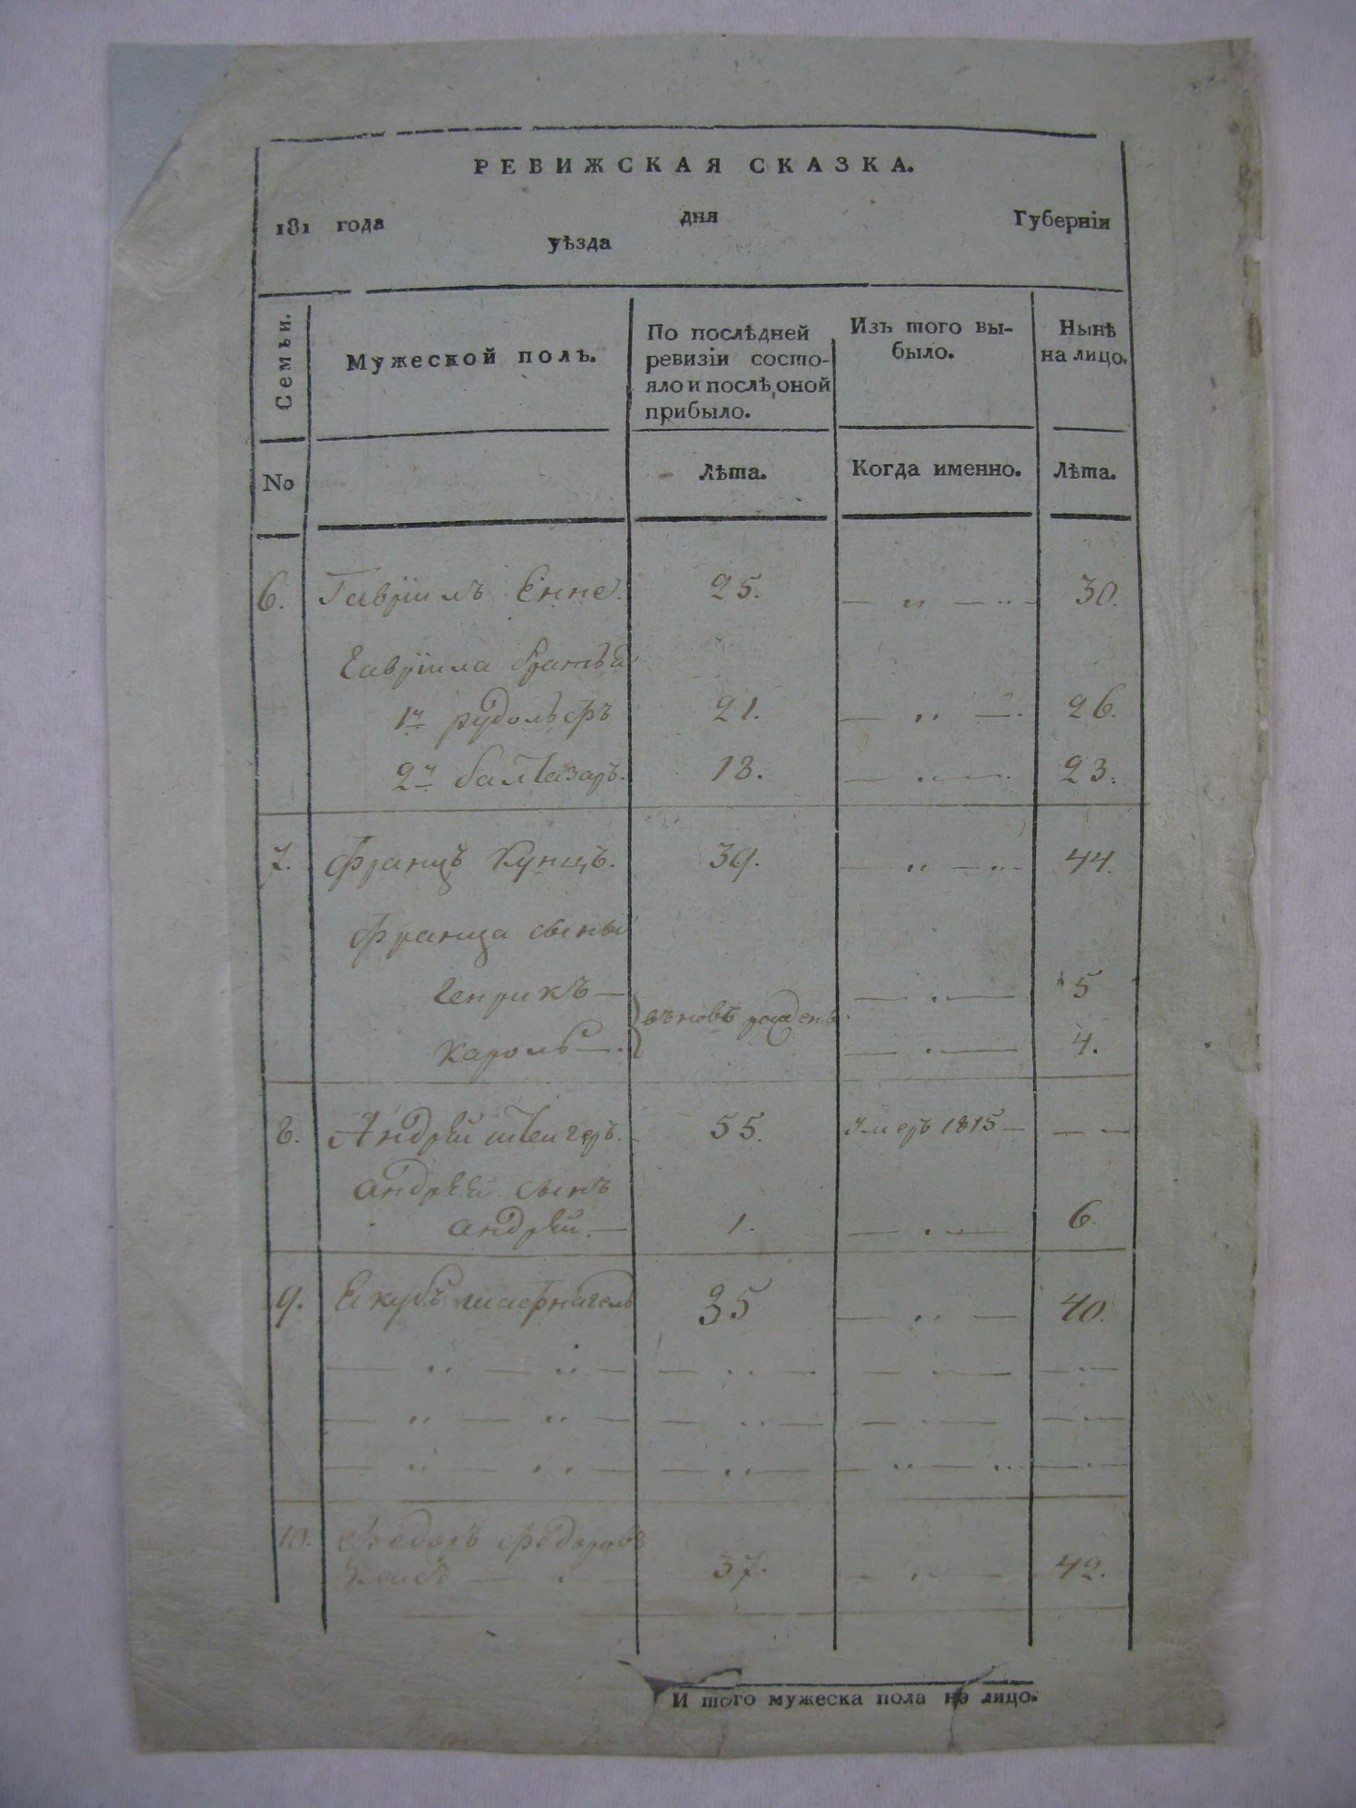 РЕВИЖСКАЯ СКАЗКА.
181 года дня Губернїи
уѣзда
Семьи.
Мужеской полъ.
По послѣдней ревизїи состояло и послѣ оной прибыло.
Изъ того выбыло.
Нынѣ на лицо.
No
Лѣта.
Когда именно.
Лѣта.
6. Гавріилъ Енне. 25. 30.
Гавріила братья
1й рудольфъ 21. 26.
2й балтазаръ. 18. 23.
7. Францъ Кунцъ. 39. 44.
Франца сыны
Генрикъ — 5
вновь рожден
Кароль — 4.
8. Андрей 55. Умеръ 1815 —
андрея сынъ
андрей. — 1. 6.
9. Якубъ 35 40.
10. Федоръ 37. 42.
И того мужеска пола на лицо.